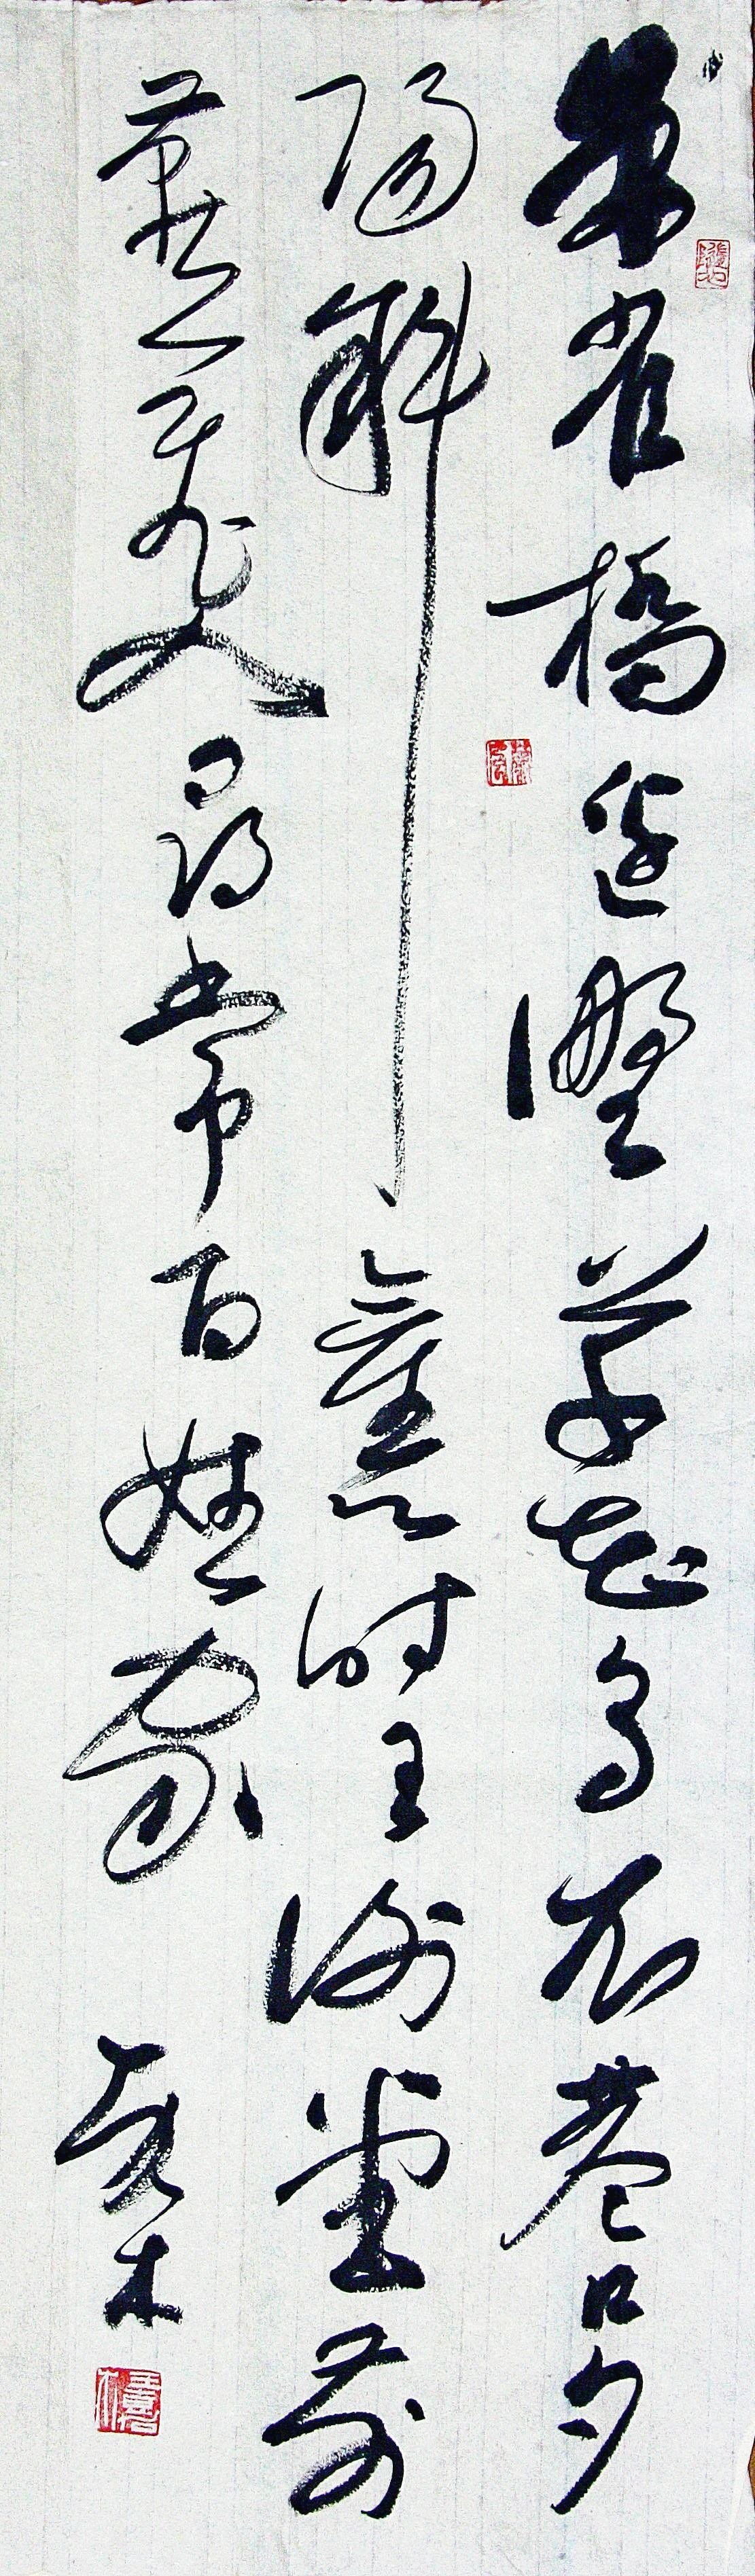 朱雀橋邊野草花烏衣巷口夕
陽斜舊時王謝堂前
燕飛入尋常百姓家